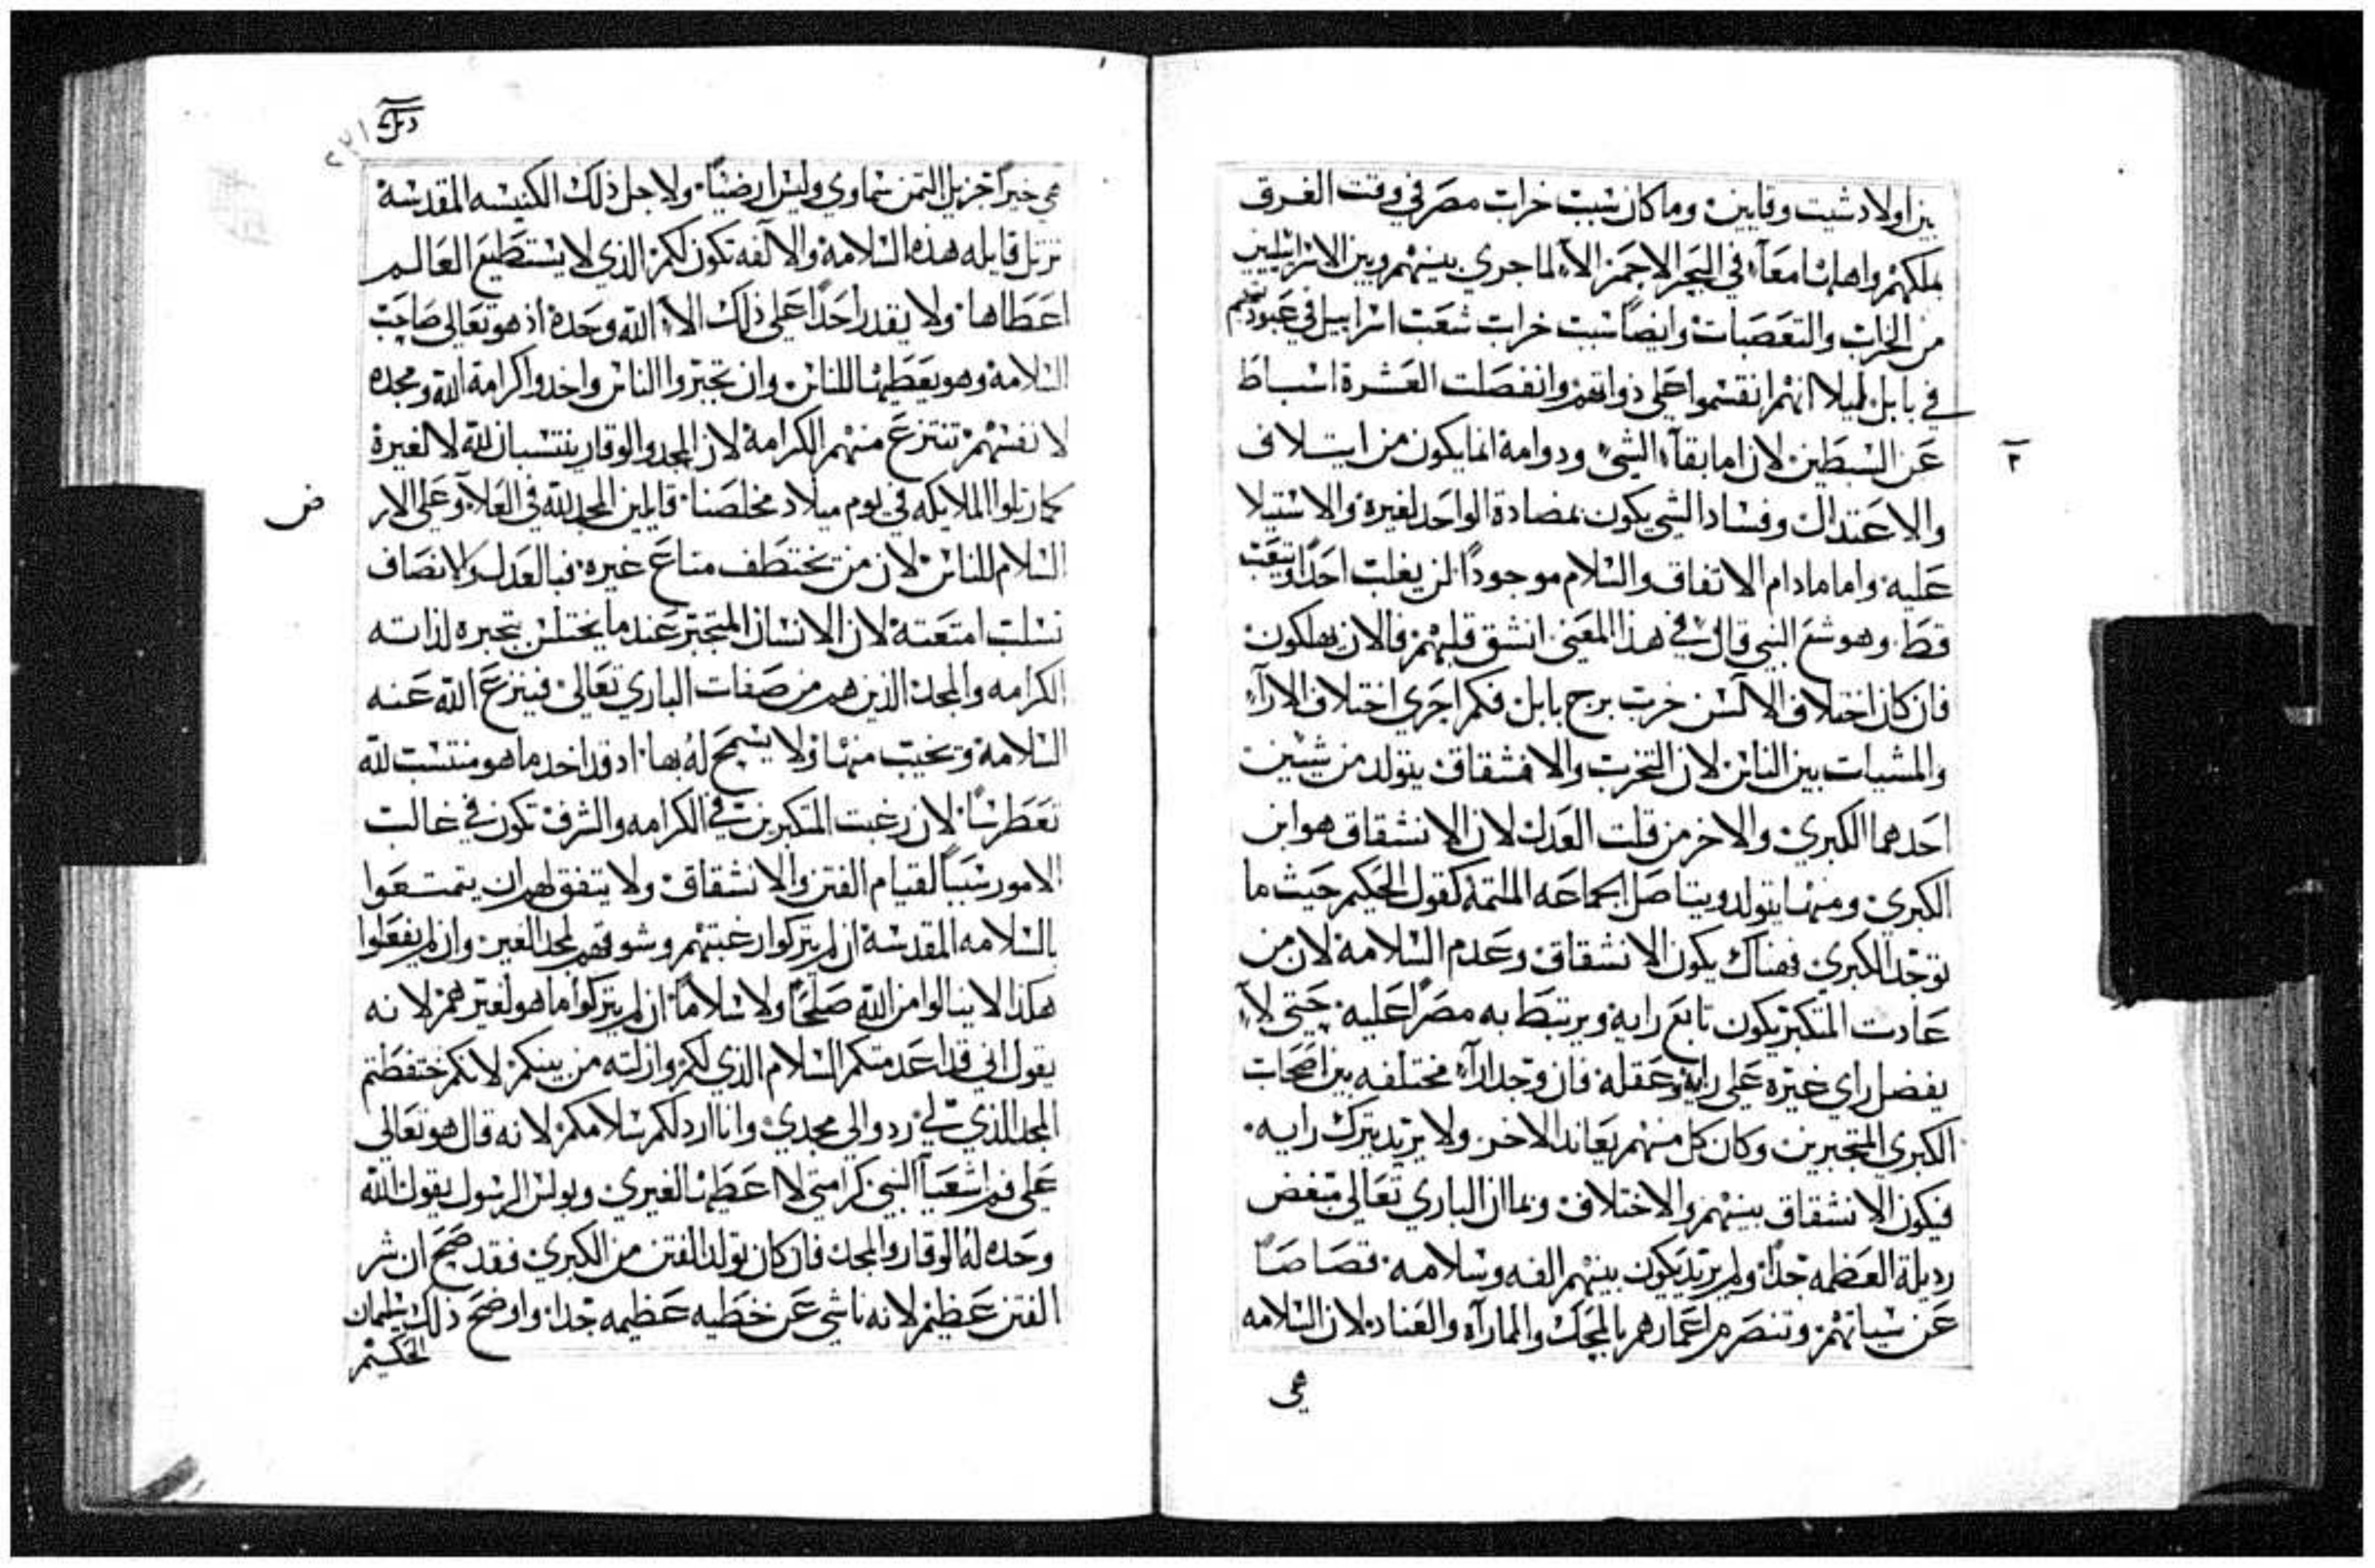 بين اولاد شيت وقايين وما كان سبب خراب مصر في وقت الغرق
بملكهم واهلها معاً في البحر الاحمر الا لما جري بينهم وبين الاسرايليين
من الخراب والتعصبات وايضاً سبب خراب شعب اسراييل في عبوديتهم
في بابل ليلا انهم انقسموا علي ذواتهم وانفصلت العشرة اسباط
عن السبطين لان اما بقاء الشي ودوامه انما يكون من ايتلاف
٢
والاعتدال وفساد الشي يكون بمضادة الواحد لغيره والاستيلا
عليه واما مادام الاتفاق والسلام موجوداً لن يغلب احداً ويتعب
قط وهوشع النبي قال في هذا المعني انشق قلبهم فالان يهلكون
فان كان اختلاف الالسن خرب برج بابل فكم احري اختلاف الاراء
والمشيات بين الناس لان التحزب والانشقاق يتولد من شيين
احدهما الكبري والاخر من قلت العدل لان الانشقاق هو ابن
الكبري ومنها يتولد ويتاصل الجماعه الملتمة كقول الحكيم حيث ما
توجد الكبري فهناك يكون الانشقاق وعدم السلامة لان من
عادت المتكبر يكون تابع رايه ويرتبط به مصراً عليه حتي لا
يفضل راي غيره علي رايه وعقله فان وجد اراء مختلفه بين اصحاب
الكبري المتجبرين وكان كل منهم يعاند الاخر ولا يريد يترك رايه
فيكون الانشقاق بينهم والاختلاف وبما ان الباري تعالي مبغض
رديلة العظمه جداً ولم يريد يكون بينهم الفه وسلامه قصاصاً
عن سياتهم وتنصرم اعمارهم بالمحك والماراه والعناد لان السلامه
هي
٢٢١
هي خيراً جزيل الثمن سماوي وليس ارضياً ولاجل ذلك الكنيسه المقدسة
ترتل قايله هذه السلامة والالفه تكون لكم الذي لا يستطيع العالم
اعطاها ولا يقدر احداً علي ذلك الا الله وحده اذ هو تعالي صاحب
السلامة وهو يعطيها للناس وان تجبروا الناس واخدوا كرامة الله ومجده
لانفسهم تنتزع منهم الكرامة لان المجد والوقار ينتسبان لله لا لغيره
كما رتلوا الملايكه في يوم ميلاد مخلصنا قايلين المجد لله في العلا وعلي الار
ض
السلام للناس لان من يختطف متاع غيره فبالعدل والانصاف
تسلب امتعته لان الانسان المتجبر عندما يختلس بتجبره لذاته
الكرامه والمجد الذين هم من صفات الباري تعالي فينزع الله عنه
السلامة ويخيب منها ولا يسمح له بها اد قد اخد ما هو منتسب لله
تغطرساً لان رغبت المتكبرين في الكرامه والشرف تكون في غالب
الامور سبباً لقيام الفتن والانشقاق ولا يتفق لهم ان يتمتعوا
بالسلامه المقدسة ان لم يتركوا رغبتهم وشوقهم لمجد الغير وان لم يفعلوا
هكذا لا ينالوا من الله صلحاً ولا سلاماً ان لم يتركوا ما هو لغيرهم لانه
يقول اني قد اعدمتكم السلام الذي لكم وازلته من بينكم لانكم ختفطتم
المجد الذي لي ردوا لي مجدي وانا ارد لكم سلامكم لانه قال هو تعالي
علي فم اشعيا النبي كرامتي لا اعطيها لغيري وبولس الرسول يقول لله
وحده له الوقار والمجد فان كان تولد الفتن من الكبري فقد صح ان شر
الفتن عظيم لانه ناشي عن خطيه عظيمه جدا واوضح ذلك سليمان
الحكيم